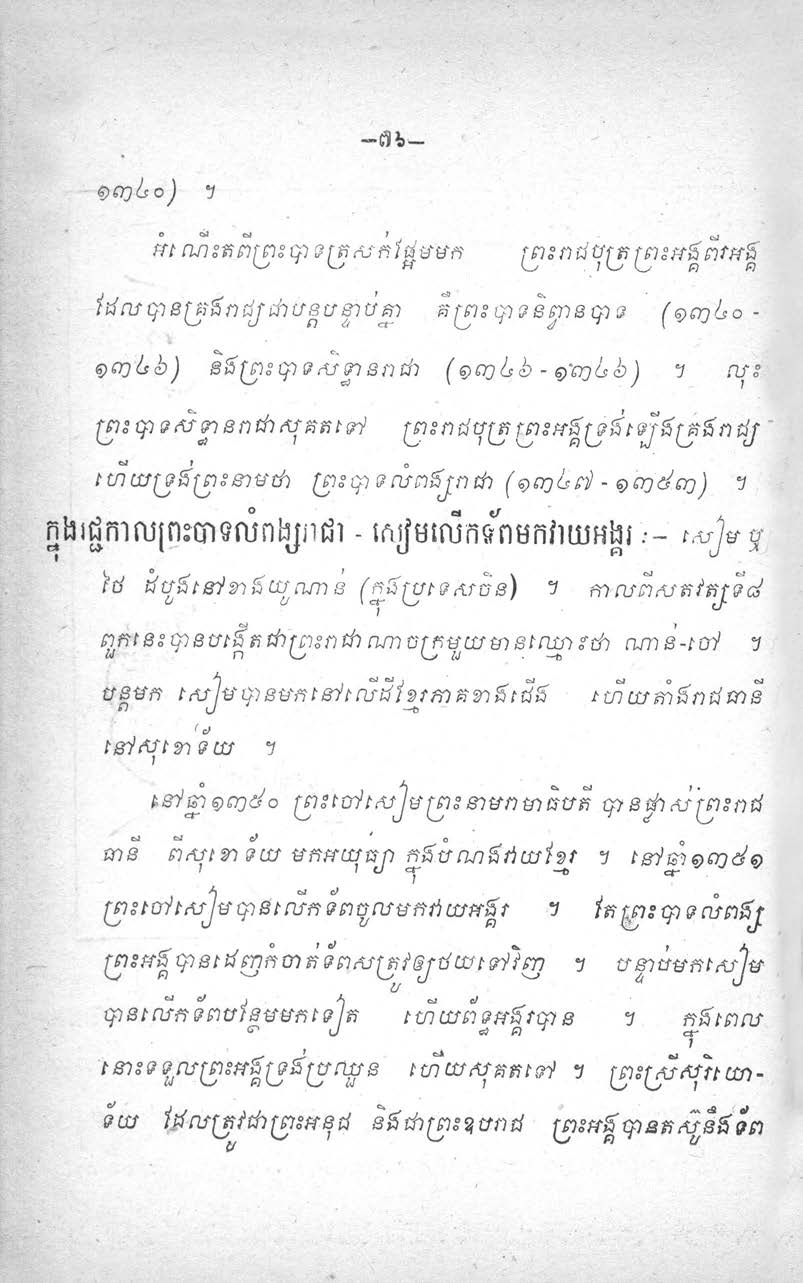 —៧៦—
១៣៤០) ។
អំណើះតពីព្រះបាទត្រសក់ផ្អែមមក ព្រះរាជបុត្រព្រះអង្គពីរអង្គ
ដែលបានគ្រងរាជ្យជាបន្តបន្ទាប់គ្នា គឺព្រះបាទនិព្វានបាទ (១៣៤០ -
១៣៤៦) និងព្រះបាទសិទ្ធានរាជា (១៣៤៦ - ១៣៤៦) ។ លុះ
ព្រះបាទសិទ្ធានរាជាសុគតទៅ ព្រះរាជបុត្រព្រះអង្គទ្រង់ឡើងគ្រងរាជ្យ
ហើយទ្រង់ព្រះនាមថា ព្រះបាទលំពង្សរាជា (១៣៤៧ - ១៣៥៣) ។
ក្នុងរជ្ជកាលព្រះបាទលំពង្សរាជា - សៀមលើកទ័ពមកវាយអង្គរ :— សៀម ឬ
ថៃ ដំបូងនៅខាងយូណាន់ (ក្នុងប្រទេសចិន) ។ កាលពីសតវត្សទី៨
ពួកនេះបានបង្កើតជាព្រះរាជាណាចក្រមួយមានឈ្មោះថា ណាន់-ចៅ ។
បន្តមក សៀមបានមកនៅលើដីខ្មែរភាគខាងជើង ហើយតាំងរាជធានី
នៅសុខោទ័យ ។
នៅឆ្នាំ១៣៥០ ព្រះចៅសៀមព្រះនាមរាមាធិបតី បានផ្លាស់ព្រះរាជ
ធានី ពីសុខោទ័យ មកអយុធ្យា ក្នុងបំណងវាយខ្មែរ ។ នៅឆ្នាំ១៣៥១
ព្រះចៅសៀមបានលើកទ័ពចូលមកវាយអង្គរ ។ តែព្រះបាទលំពង្ស
ព្រះអង្គបានដេញកំចាត់ទ័ពសត្រូវឲ្យថយទៅវិញ ។ បន្ទាប់មកសៀម
បានលើកទ័ពបន្ថែមមកទៀត ហើយព័ទ្ធអង្គរបាន ។ ក្នុងពេល
នោះទទួលព្រះអង្គទ្រង់ប្រឈួន ហើយសុគតទៅ ។ ព្រះស្រីសុរិយោ-
ទ័យ ដែលត្រូវជាព្រះអនុជ និងជាព្រះឧបរាជ ព្រះអង្គបានតស៊ូនឹងទ័ព